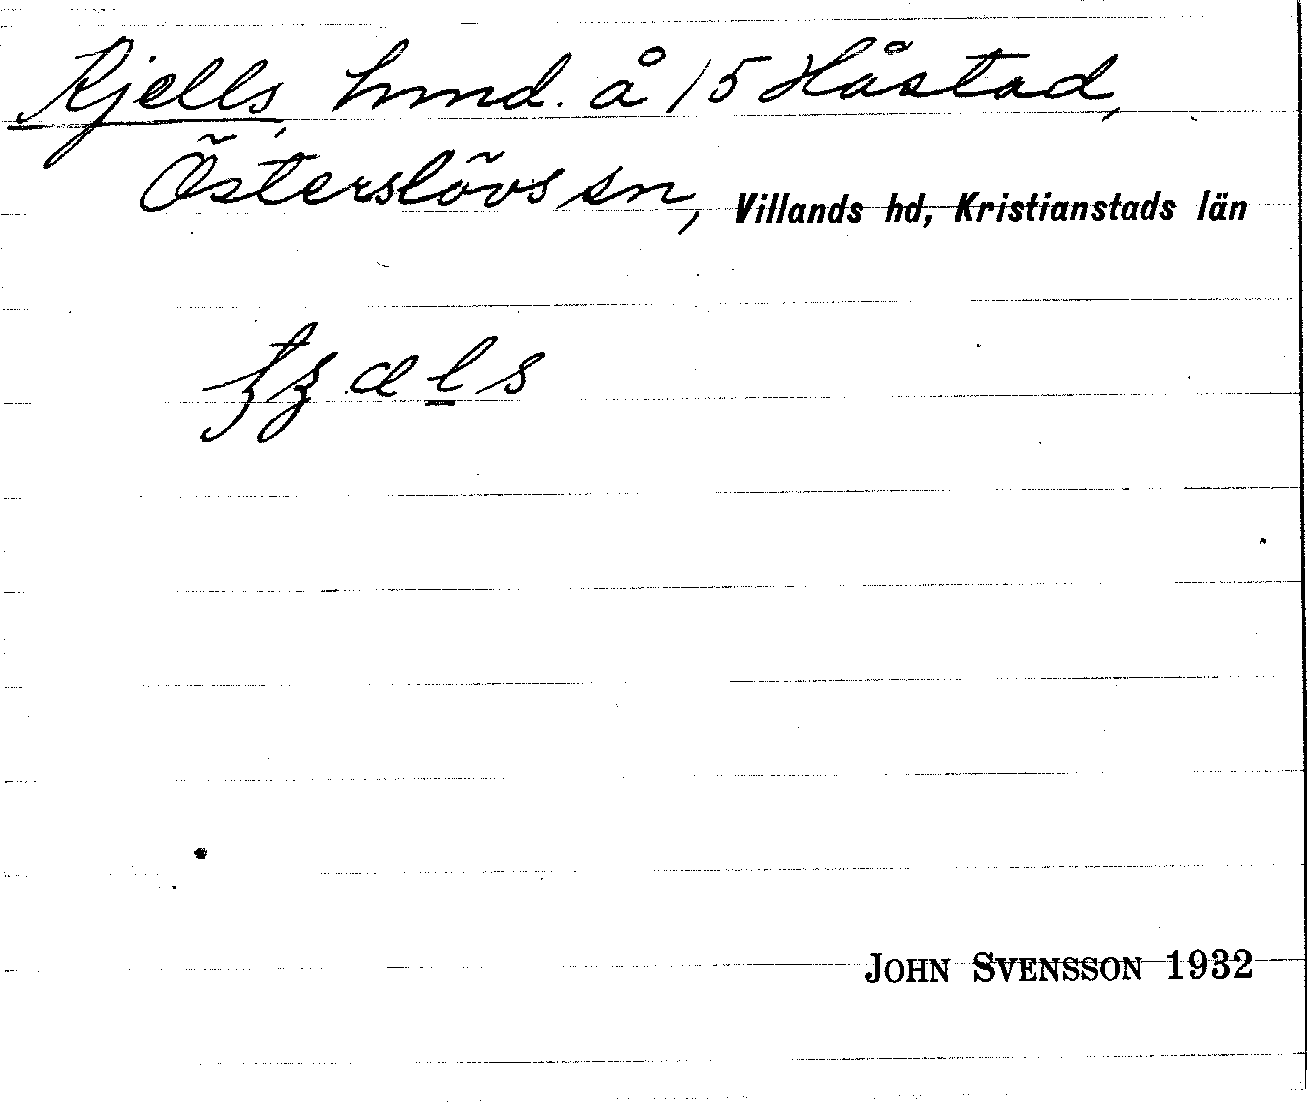 Kjells, hmd. å 15 Håstad,
Österslövs sn, Villands hd, Kristianstads län
JOHN SVENSSON 1932